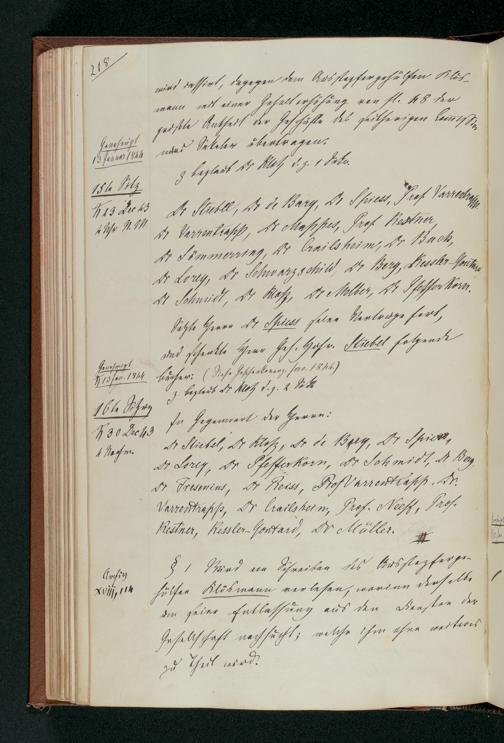 218
wird cassirt, dagegen dem Ausstopfergehülfen Klös-
mann mit einer Gehaltserhöhung von fl. 48 der
größte Antheil der Geschäfte des seitherigen
übertragen.
Genehmigt
13 Januar 1844
z beglaubt Dr Kloß d. z. 1 Sekr.
15te Sitzg
23 Dec 43
Dr Stiebel, Dr de Bary, Dr Spiess, Prof Varrentrapp,
Dr Varrentrapp, Dr Mappes, Prof Kestner,
Dr Sömmerring, Dr Crailsheim, Dr Buck,
Dr Lorey, Dr Schwarzschild, Dr Berg, Kessler-Gontard
Dr Schmidt, Dr Kloß, Dr Melber, Dr Pfefferkorn.
Setzte Herr Dr Spiess seine Vorträge fort,
und schenkte Herr Geh. Hofr. Stiebel folgende
Bücher: (Siehe 1844)
Genehmigt
13 Jan. 1844
z beglaubt Dr Kloß d. z. 2 Sekr
16te Sitzg
30 Dec 43
In Gegenwart der Herrn:
Dr Stiebel, Dr Kloß, Dr de Bary, Dr Spiess,
Dr Lorey, Dr Pfefferkorn, Dr Schmidt, Dr Berg
Dr Fresenius, Dr Reiss, Prof Varrentrapp. Dr.
Varrentrapp, Dr Crailsheim, Prof. Neeff, Prof.
Kestner, Kessler-Gontard, Dr Müller.
Archiv
XVIII, 114
§ 1 Wird ein Schreiben des Ausstopferge-
hülfen Klösmann verlesen, worin derselbe
um seine Entlassung aus den Diensten der
Gesellschaft nachsucht; welche ihm ohne weiteres
zu Theil wird.